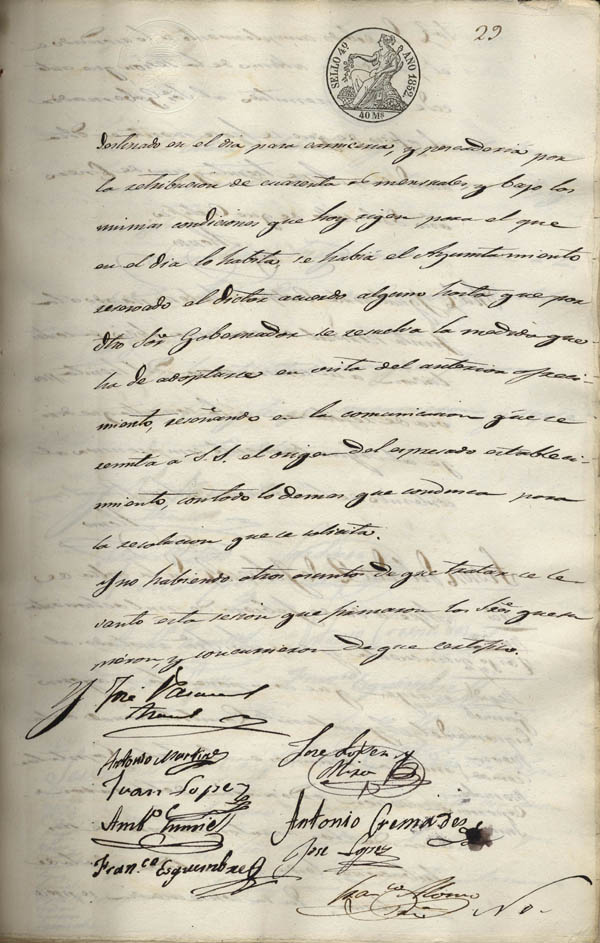 29
SELLO 4º AÑO 1852
40 Ms
destinado en el dia para carniceria, y pescaderia por
la retribucion de cuarenta rs mensuales y bajo las
mismas condiciones que hoy rigen para el que
en el dia lo habita, se habia el Ayuntamiento
reservado el dictar acuerdo alguno hasta que por
dho Sôr Gobernador se resuelva la medida que
ha de adoptarse en vista del anterior ofreci-
miento, reseñando en la comunicacion que se
remita á S.S. el origen del espresado estableci-
miento, con todo lo demas que conduzca para
la resolucion que se solicita.
Y no habiendo otros asuntos de que tratar se le-
vanto esta sesion que firmaron los Sres que su-
pieron, y concurrieron de que certifico.
José Pascual
Antonio Martinez
José Lopez y
Juan Lopez
Ambº
Antonio Cremades
Jose Lopez
Franco Esquembre
Franco Alonso